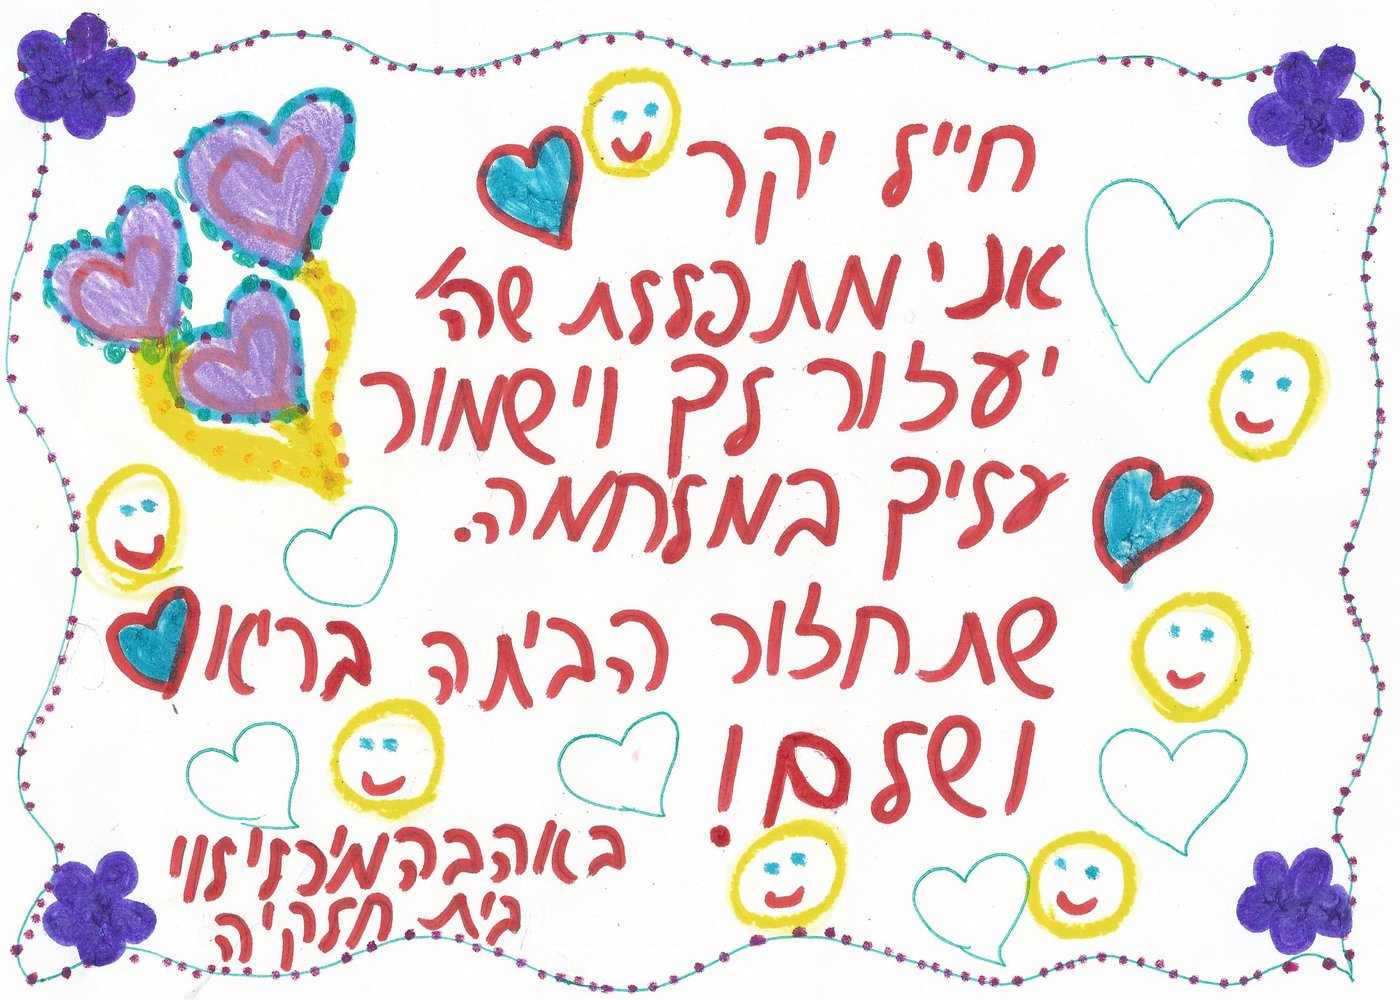 חייל יקר
אני מתפללת שה'
יעזור לך וישמור
עליך במלחמה.
שתחזור הביתה בריא
ושלם!
באהבה
בית חלקיה